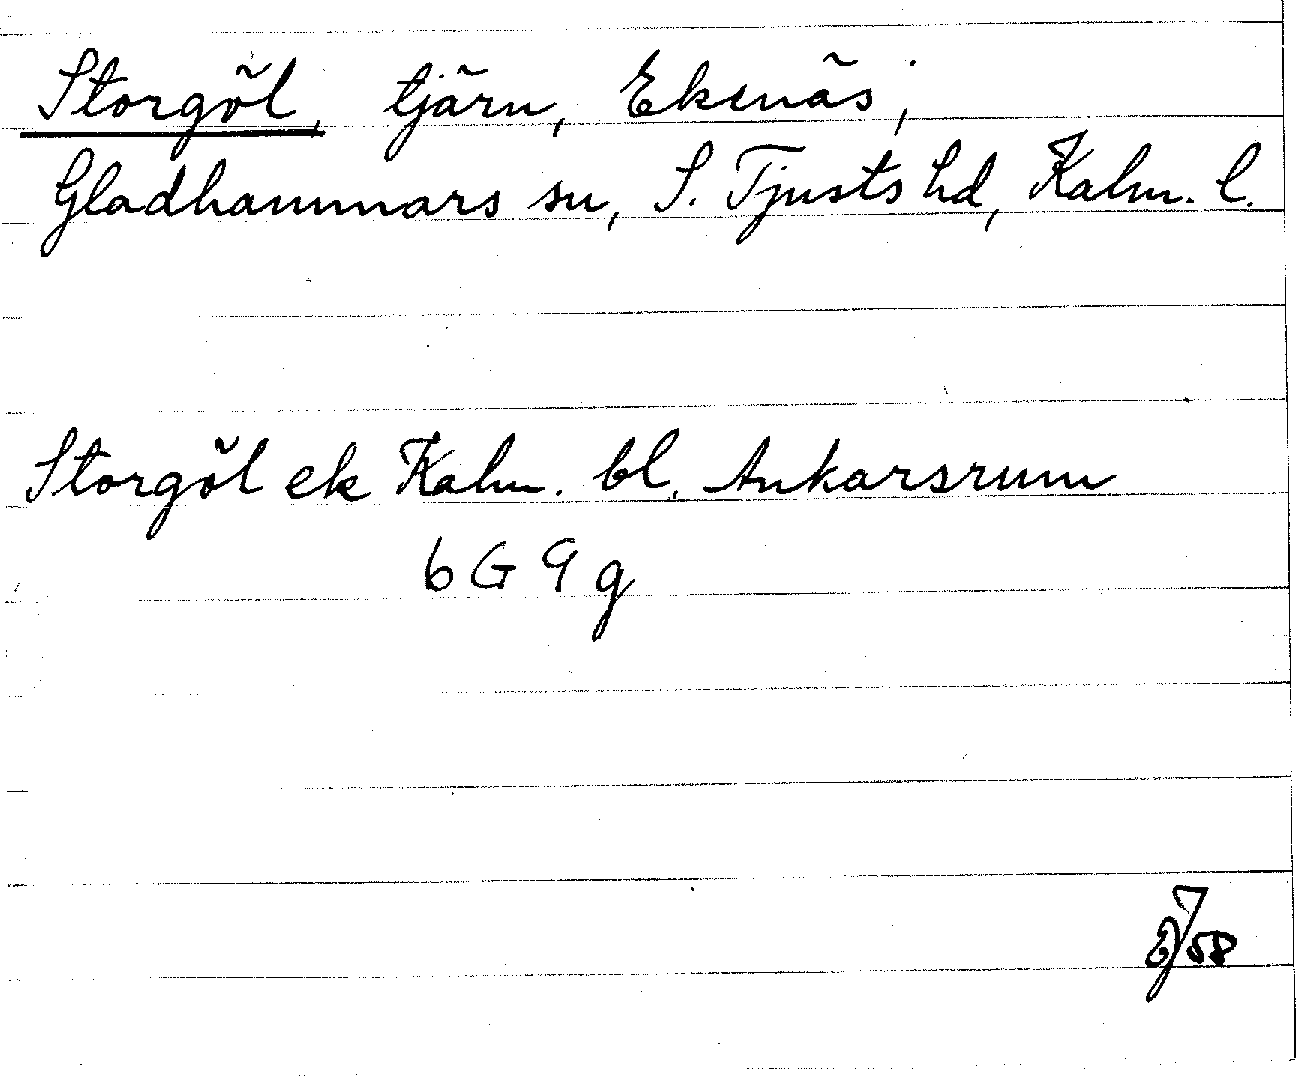 Storgöl, tjärn, Ekenäs,
Gladhammars sn, S. Tjusts hd, Kalm. l.
Storgöl ek Kalm. bl. Ankarsrum
6G 9g